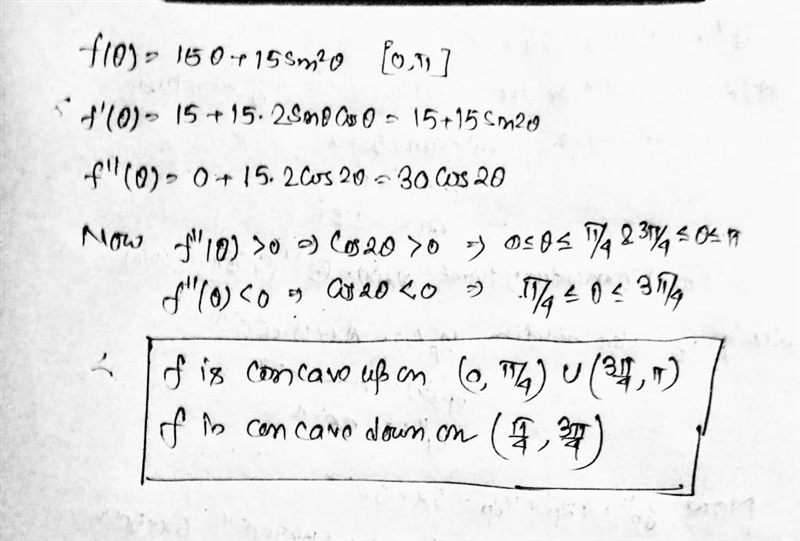 f(θ) = 15θ + 15 sin²θ [0, π]
∴ f'(θ) = 15 + 15. 2 sinθ cosθ = 15 + 15 sin2θ
f''(θ) = 0 + 15. 2 cos 2θ = 30 cos 2θ
Now f''(θ) > 0 ⇒ cos 2θ > 0 ⇒ 0 ≤ θ ≤ π/4 & 3π/4 ≤ θ ≤ π
f''(θ) < 0 ⇒ cos 2θ < 0 ⇒ π/4 ≤ θ ≤ 3π/4
∴ f is concave up on (0, π/4) ∪ (3π/4, π)
f is concave down on (π/4, 3π/4)